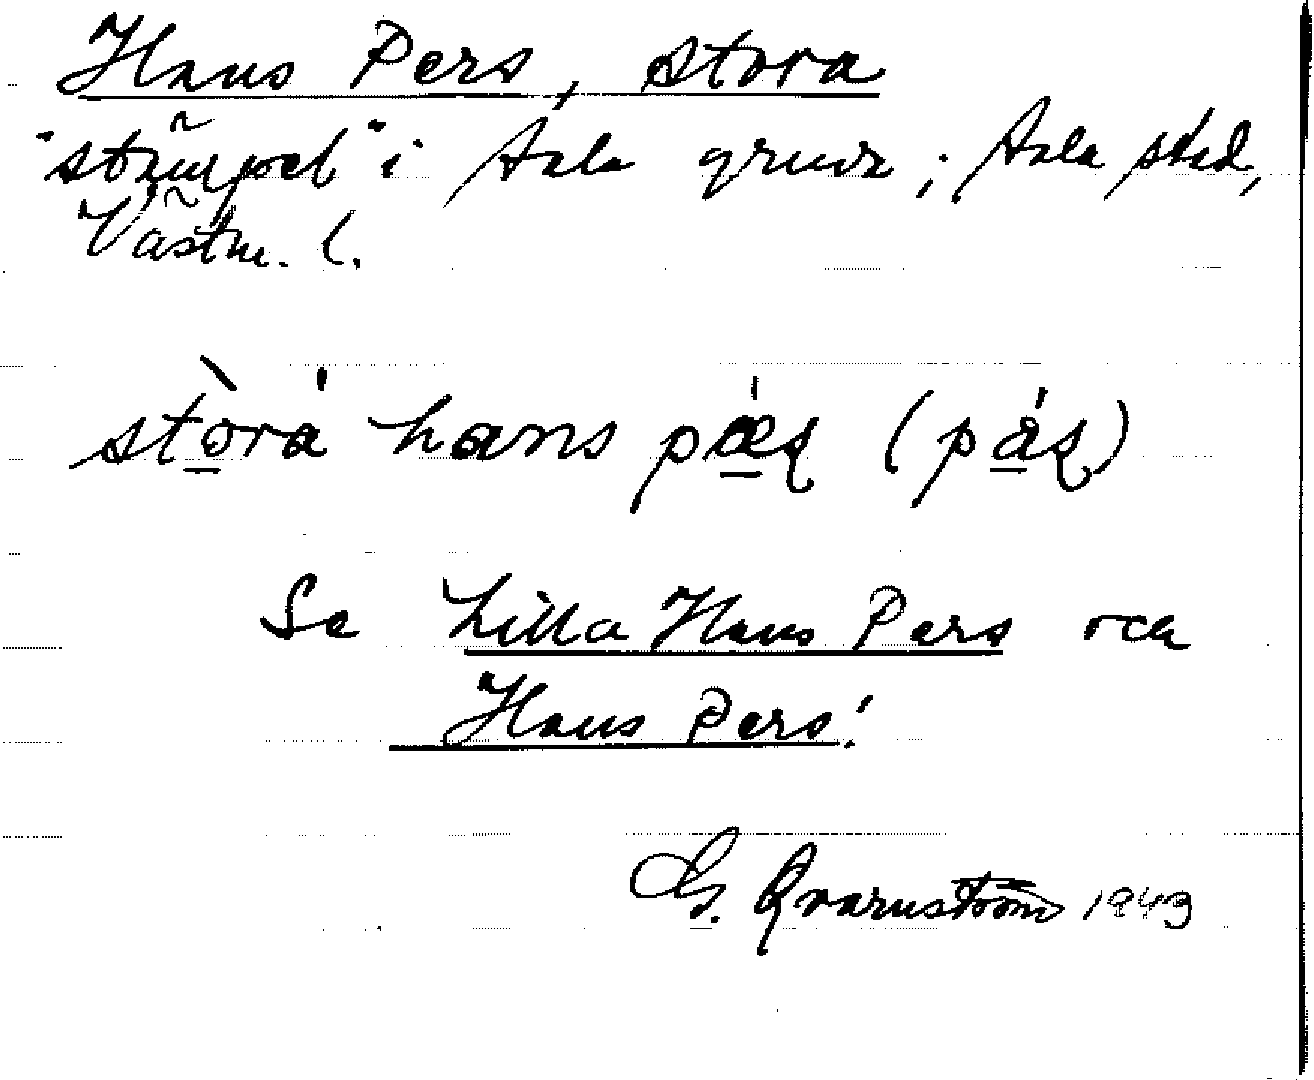 Hans Pers, stora
"stämpel" i Sala gruva; Sala stad,
Västm. l.
stòrá hans pǽʂ (páʂ)
Se Lilla Hans Pers och
Hans Pers!
G. Qvarnström 1943